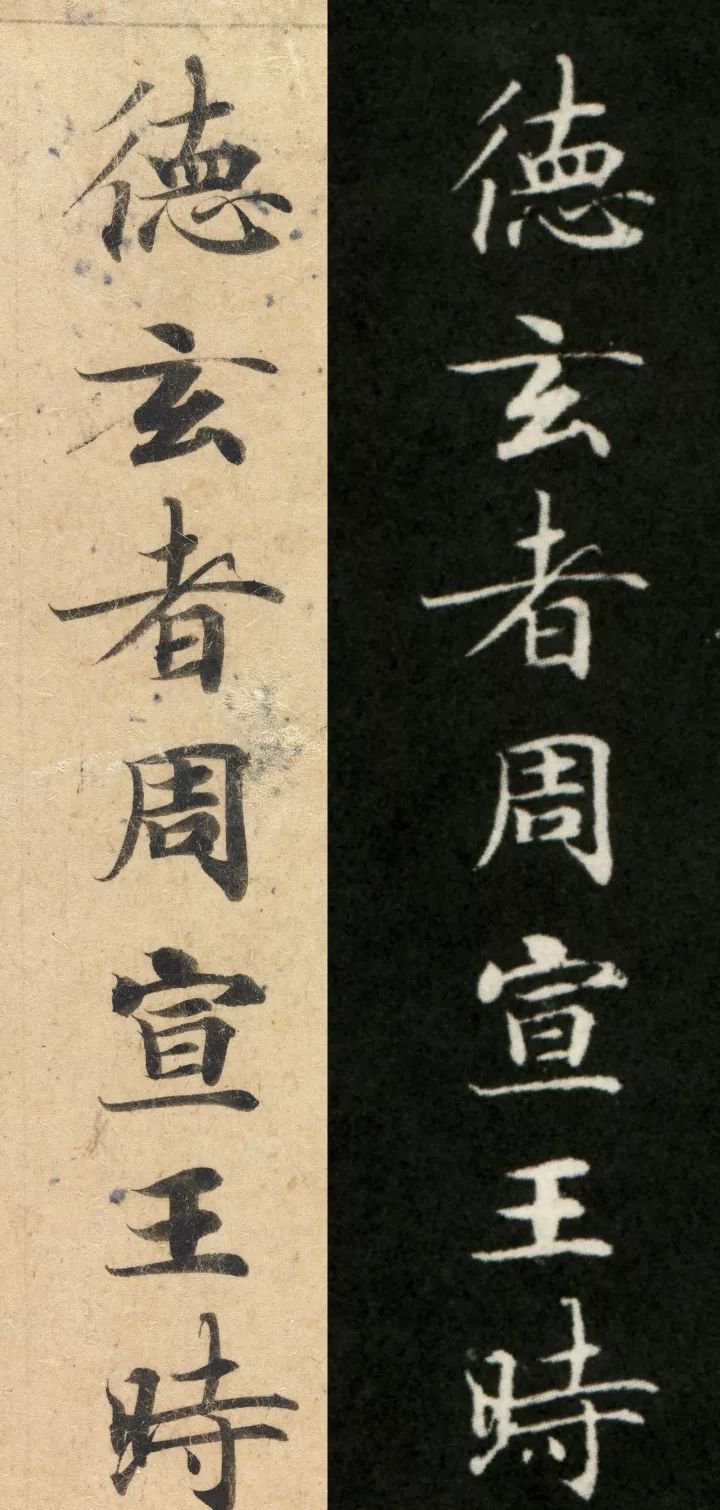 德玄者周宣王時
德玄者周宣王時